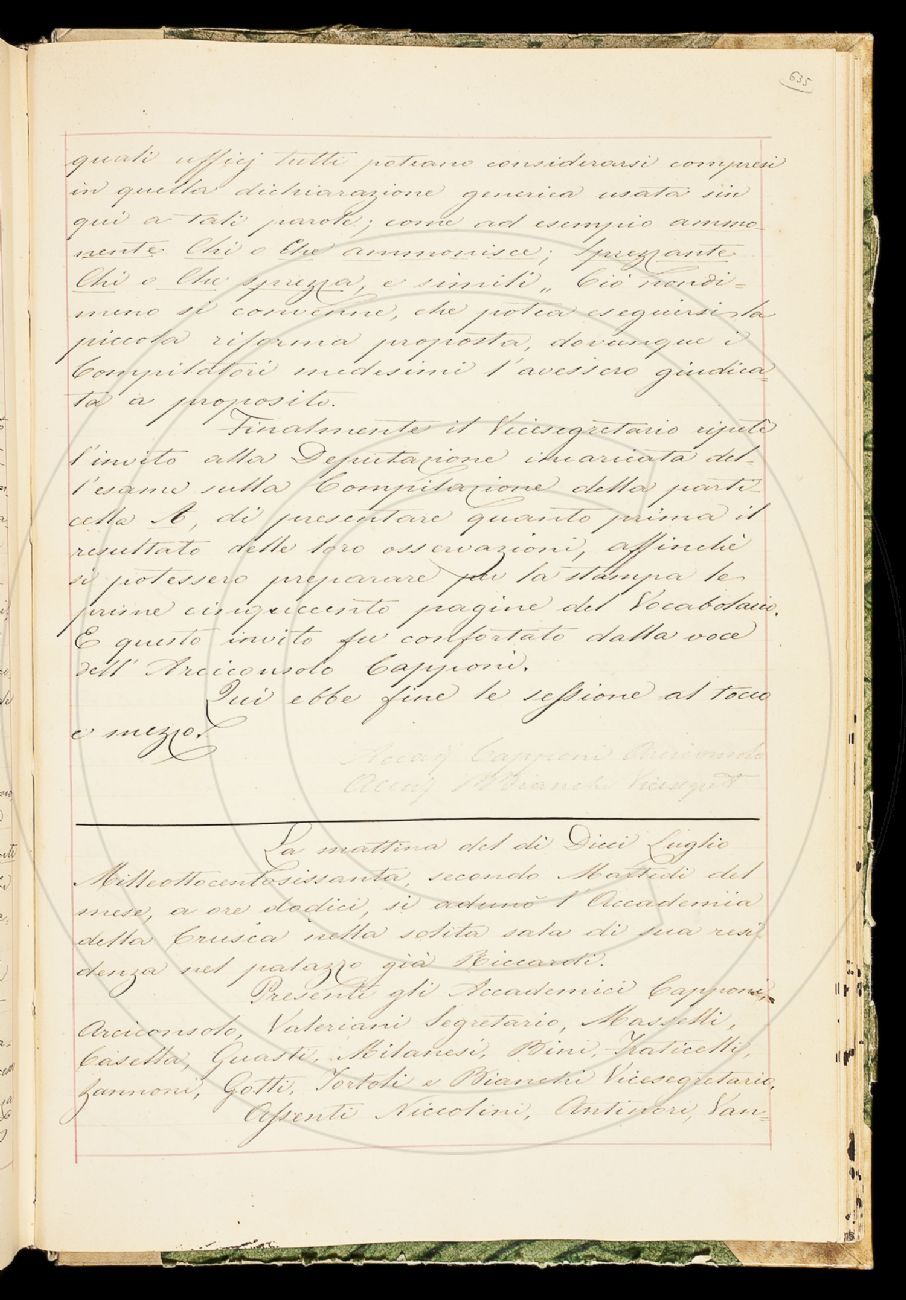 635
quali ufficj tutti poteano considerarsi compresi
in quella dichiarazione generica usata sin
qui a tali parole; come ad esempio ammo-
nente Chi o Che ammonisce; Sprezzante
Chi o Che sprezza, e simili „ Ciò nondi=
meno si convenne, che potea eseguirsi la
piccola riforma proposta, dovunque i
Compilatori medesimi l'avessero giudica-
ta a proposito.
Finalmente il Vicesegretario ripetè
l'invito alla Deputazione incaricata del-
l'esame sulla Compilazione della parti-
cella A, di presentare quanto prima il
resultato delle loro osservazioni, affinchè
si potessero preparare per la stampa le
prime cinquecento pagine del Vocabolario.
E questo invito fu confortato dalla voce
dell'Arciconsolo Capponi.
Qui ebbe fine le sessione al tocco
e mezzo.
Accadj Capponi Arciconsolo
Accadj B Bianchi Vicesegret
La mattina del dì Dieci Luglio
Milleottocentosissanta, secondo Martedì del
mese, a ore dodici, si adunò l'Accademia
della Crusca nella solita sala di sua resi-
denza nel palazzo già Riccardi.
Presenti gli Accademici Capponi,
Arciconsolo, Valeriani Segretario, Masselli,
Casella, Guasti, Milanesi, Bini, Fraticelli,
Zannoni, Gotti, Tortoli e Bianchi Vicesegretario.
Assenti Niccolini, Antinori, Van=